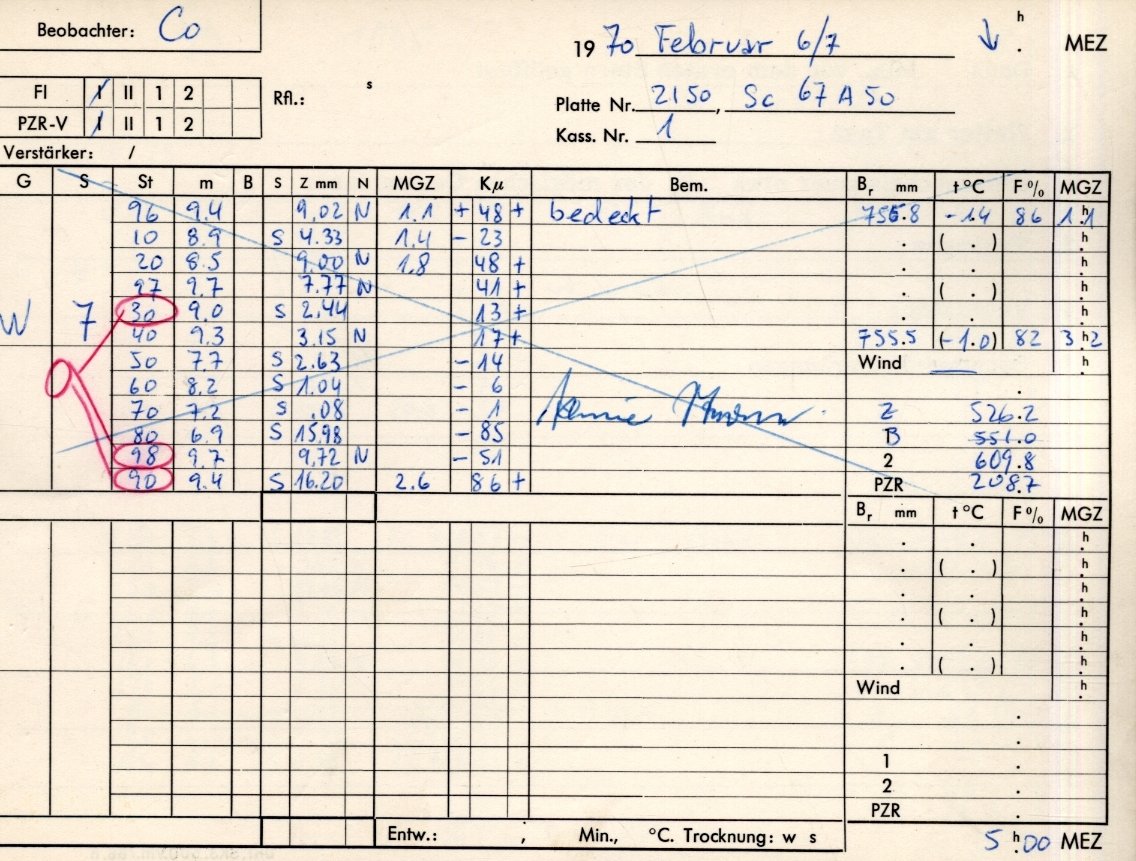 Beobachter: Co
1970 Februar 6/7 ↓ h . MEZ
FI I II 1 2
Rfl.: s
Platte Nr. 2150, Sc 67 A 50
PZR-V I II 1 2
Kass. Nr. 1
Verstärker: /
G S St m B S Z mm N MGZ Kμ Bem. Br mm t°C F% MGZ
96 9.4 9.02 N 1.1 + 48 + bedeckt 755.8 -1.4 86 1.h1
10 8.9 S 4.33 1.4 - 23 . ( . ) .h
20 8.5 9.00 N 1.8 48 + . . .h
97 9.7 7.77 N 41 + . ( . ) .h
W 7 30 9.0 S 2.44 13 + . . .h
40 9.3 3.15 N 17 + 755.5 (-1.0) 82 3.h2
50 7.7 S 2.63 - 14 Wind .h
60 8.2 S 1.04 - 6 .
70 7.2 S .08 - 1 Z 526.2
80 6.9 S 15.98 - 85 B 551.0
98 9.7 9.72 N - 51 2 609.8
90 9.4 S 16.20 2.6 86 + PZR 208.7
Br mm t°C F% MGZ
. . .h
. ( . ) .h
. . .h
. ( . ) .h
. . .h
. ( . ) .h
Wind .h
.
.
1 .
2 .
PZR .
Entw.: , Min., °C. Trocknung: w s 5 h.00 MEZ